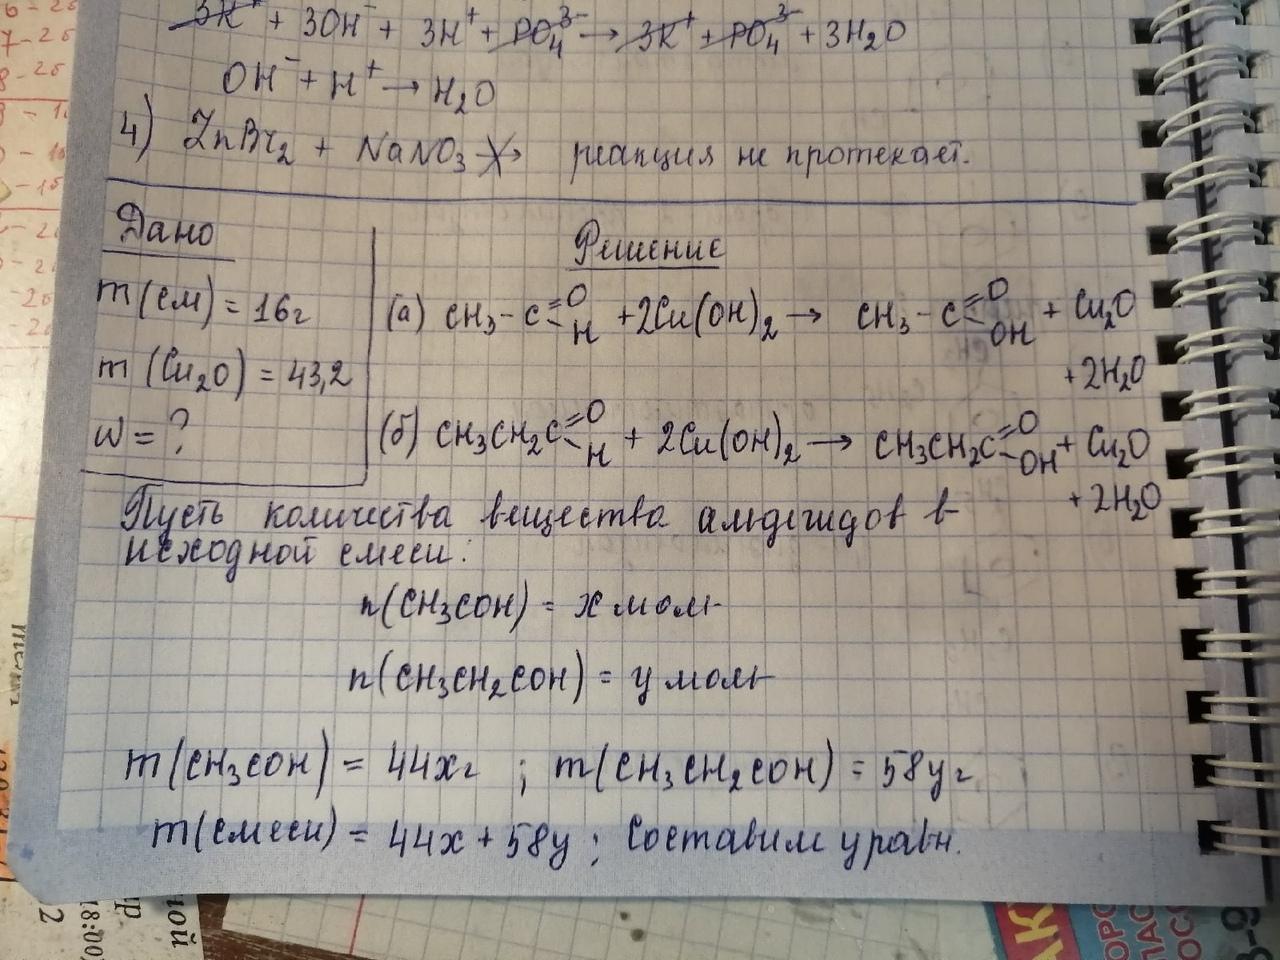 3K⁺ + 3OH⁻ + 3H⁺ + PO₄³⁻ → 3K⁺ + PO₄³⁻ + 3H₂O
OH⁻ + H⁺ → H₂O
4) ZnBr₂ + NaNO₃ ↛ реакция не протекает.
Дано
m(см) = 16г
m(Cu₂O) = 43,2
W = ?
Решение
(а) CH₃-C=O-H + 2Cu(OH)₂ → CH₃-C=O-OH + Cu₂O
+ 2H₂O
(б) CH₃CH₂C=O-H + 2Cu(OH)₂ → CH₃CH₂C=O-OH + Cu₂O
+ 2H₂O
Пусть количества вещества альдегидов в
исходной смеси:
n(CH₃COH) = x моль
n(CH₃CH₂COH) = y моль
m(CH₃COH) = 44xг ; m(CH₃CH₂COH) = 58yг
m(смеси) = 44x + 58y ; Составим уравн.
ной
18:00
2